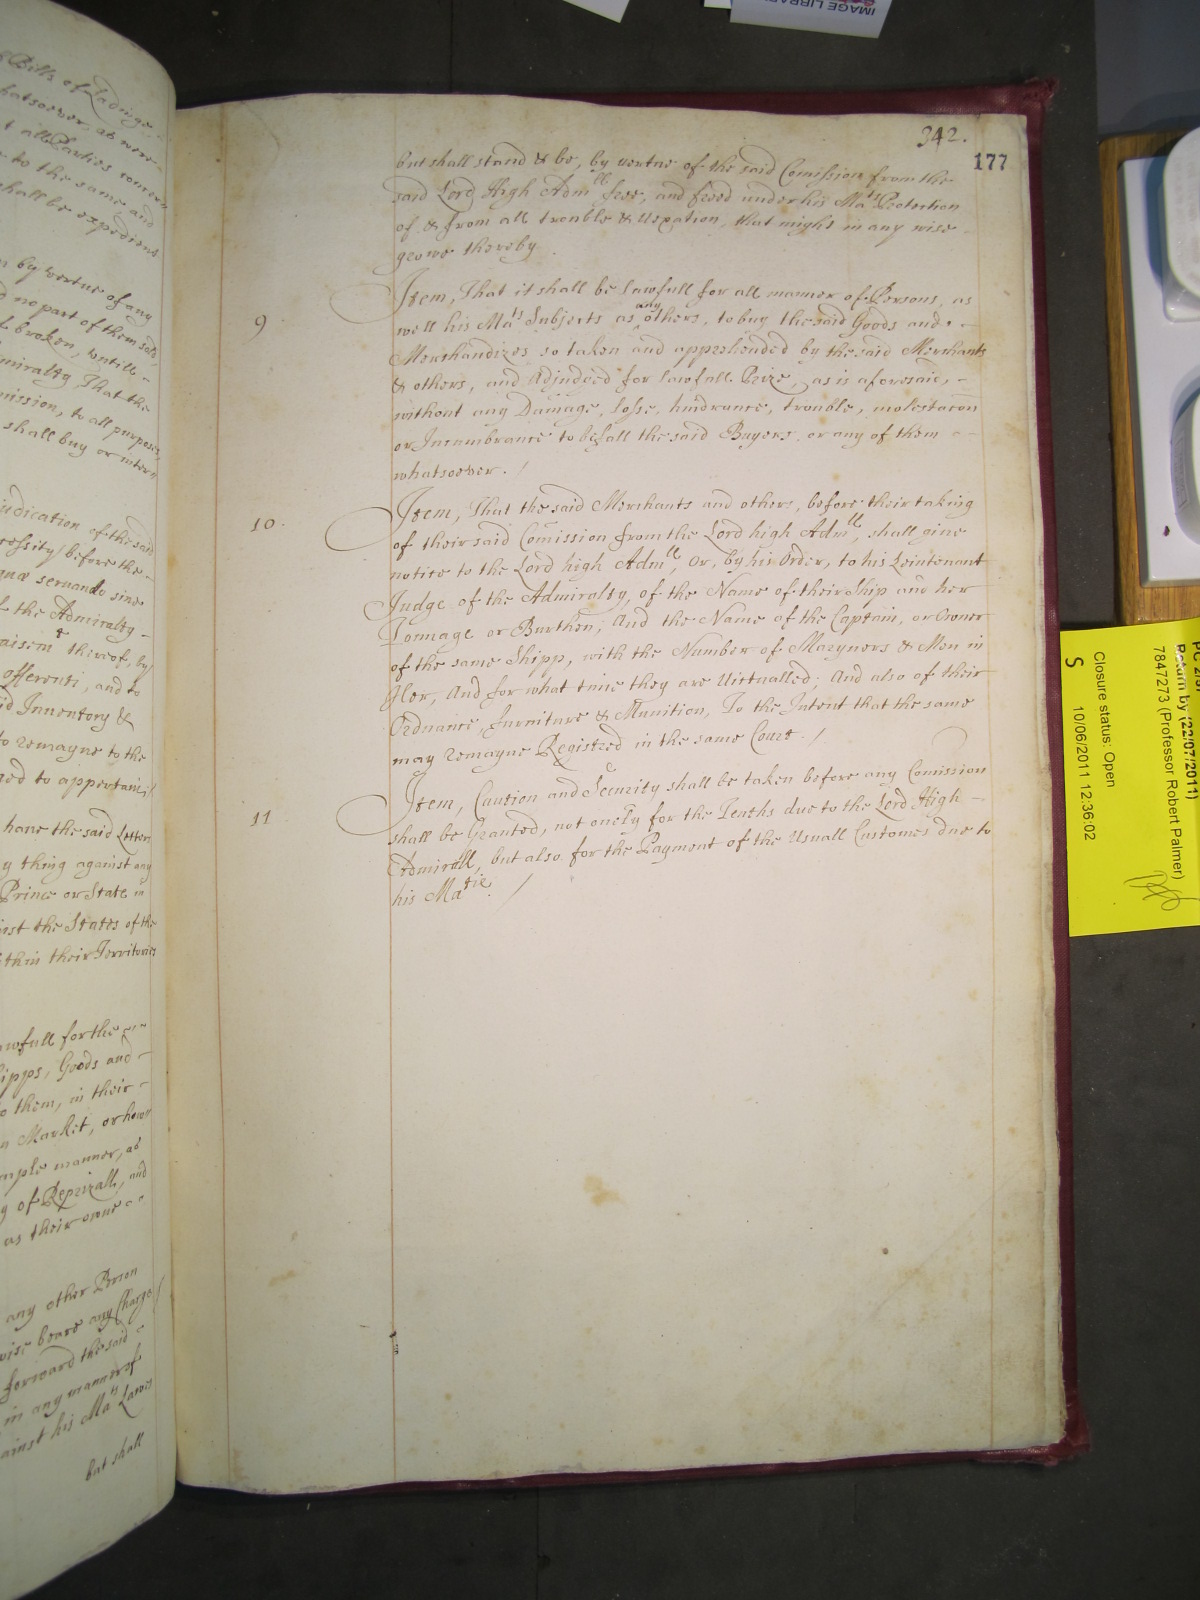 of Bills of Ladinge
hatsoever, as were
t all Parties
to the same and
shall be expedient
by vertue of any
d no part of them sold,
broken, untill
miralty That the
mission, to all purposes
shall buy or
judication of the said
cessity before the
quæ servando sine
f the Admiralty
aisemt thereof, by
offerenti, and to
id Inventory &
to remayne to the
ed to appertain
hane the said Letters
y thing against any
Prince or State in
inst the States of the
ithin their Territories
awfull for the
hipps, Goods and
o them, in their
n Market, or how
mple manner, as
of Reprizall, and
as their owne
any other Person
wise beare any Charge
forward the said
in any manner of
ainst his Mats Lawes
but shall
342.
177
but shall stand & be, by vertue of the said Comission from the
said Lord High Admll free, and freed under his Mats Protection
of & from all trouble & vexation, that might in any wise
growe thereby.
9
Item, That it shall be lawfull for all manner of Persons, as
well his Mats Subjects as any others, to buy the said Goods and
Merchandizes so taken and apprehended by the said Merchants
& others, and Adjudged for lawfull Prize, as is aforesaid,
without any Damage, losse, hindrance, trouble, molestacon
or Incumbrance to befall the said Buyers, or any of them
whatsoever. /
10.
Item, That the said Merchants and others, before their taking
of their said Comission from the Lord high Admll, shall give
notice to the Lord high Admll, or, by his Order, to his Leiutenant
Judge of the Admiralty, of the Name of their Ship and her
Tonnage or Burthen; And the Name of the Captain, or Owner
of the same Shipp, with the Number of Maryners & Men in
Her, And for what time they are Victualled; And also of their
Ordnance, furniture & Munition, To the Intent that the same
may remayne Registred in the same Court. /
11
Item, Caution and Security shall be taken before any Comission
shall be Granted, not onely for the Tenths due to the Lord High
Admirall, but also for the Payment of the Usuall Customes due to
his Matie. /
IMAGE LIBRARY
PC 2/5
Return by (22/07/2011)
7847273 (Professor Robert Palmer)
Closure status: Open
S 10/06/2011 12:36:02